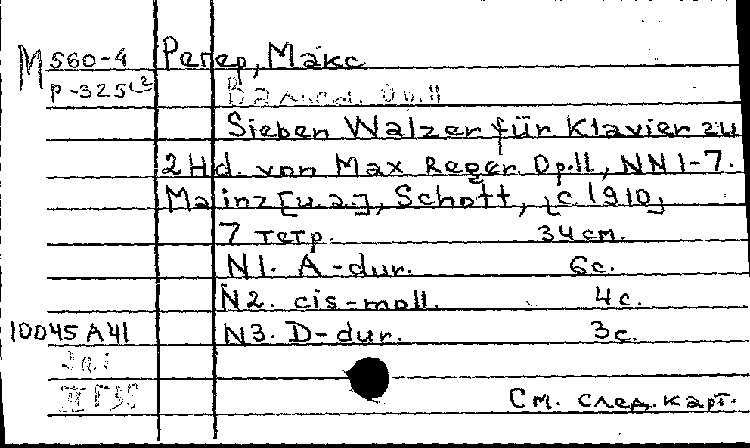 М 560-4 Регер, Макс
Р-325
Вальсы. Op.11
Sieben Walzer für Klavier zu
2 Hd. von Max Reger Op.11, NN 1-7.
Mainz [u.a.], Schott, [c. 1910]
7 тетр. 34 см.
N1. A-dur. 6с.
N2. cis-moll. 4с.
10045 А 41 N3. D-dur. 3с.
См. след. карт.